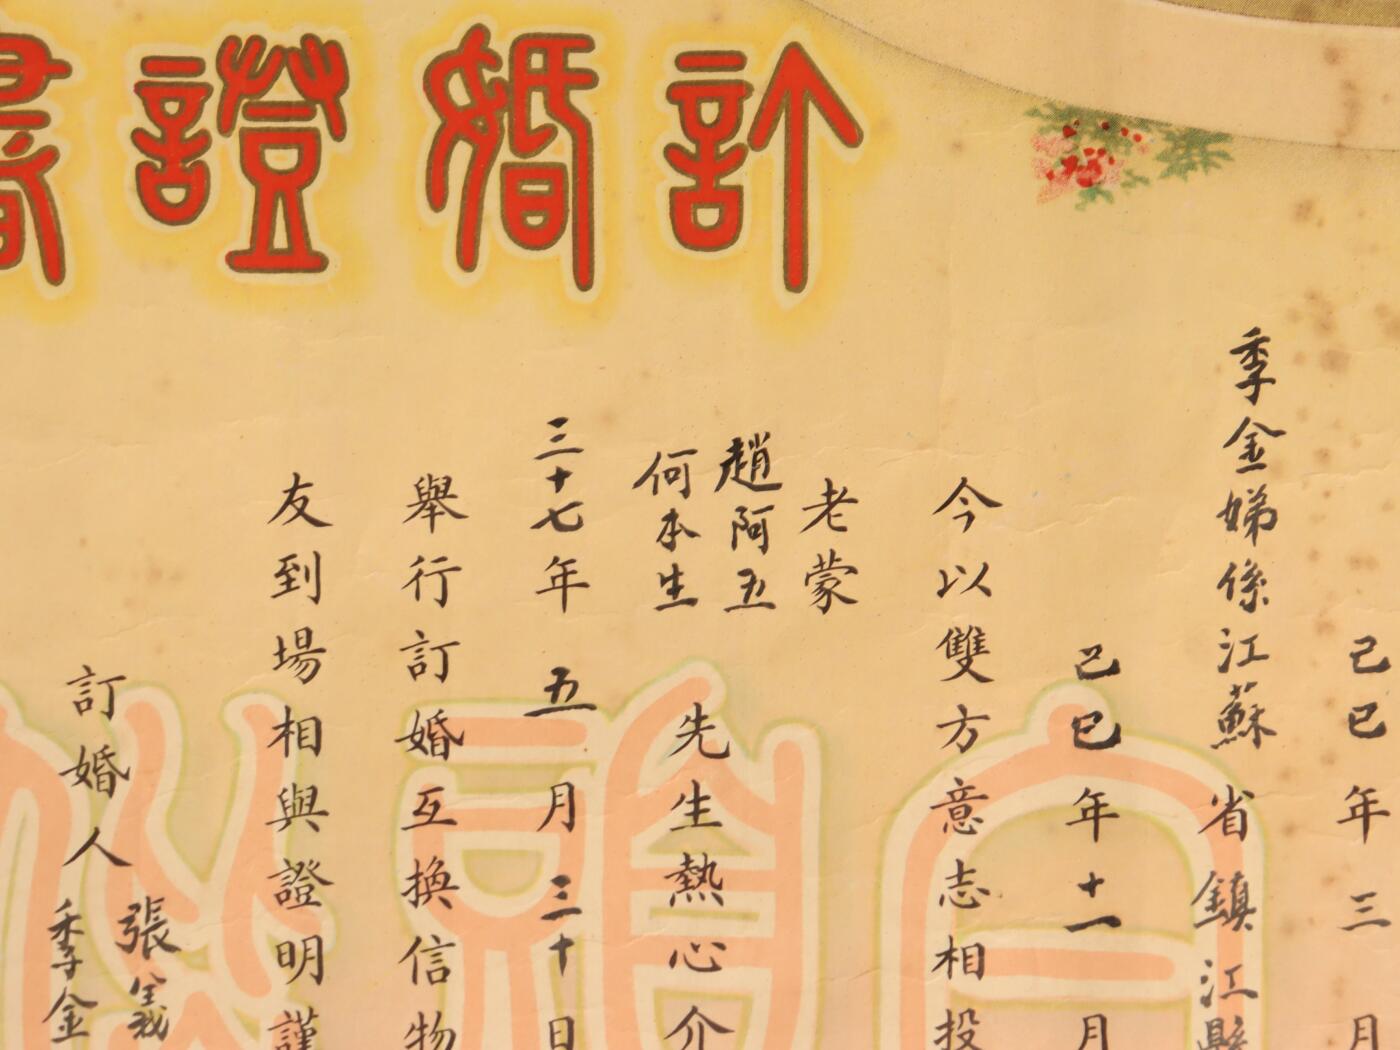 訂婚證書
己巳年三月
季金娣係江蘇省鎮江縣
己巳年十一月
今以雙方意志相投
老蒙
趙阿五
何本生
先生熱心介
三十七年五月三十日
舉行訂婚互換信物
友到場相與證明謹
訂婚人
張義
季金